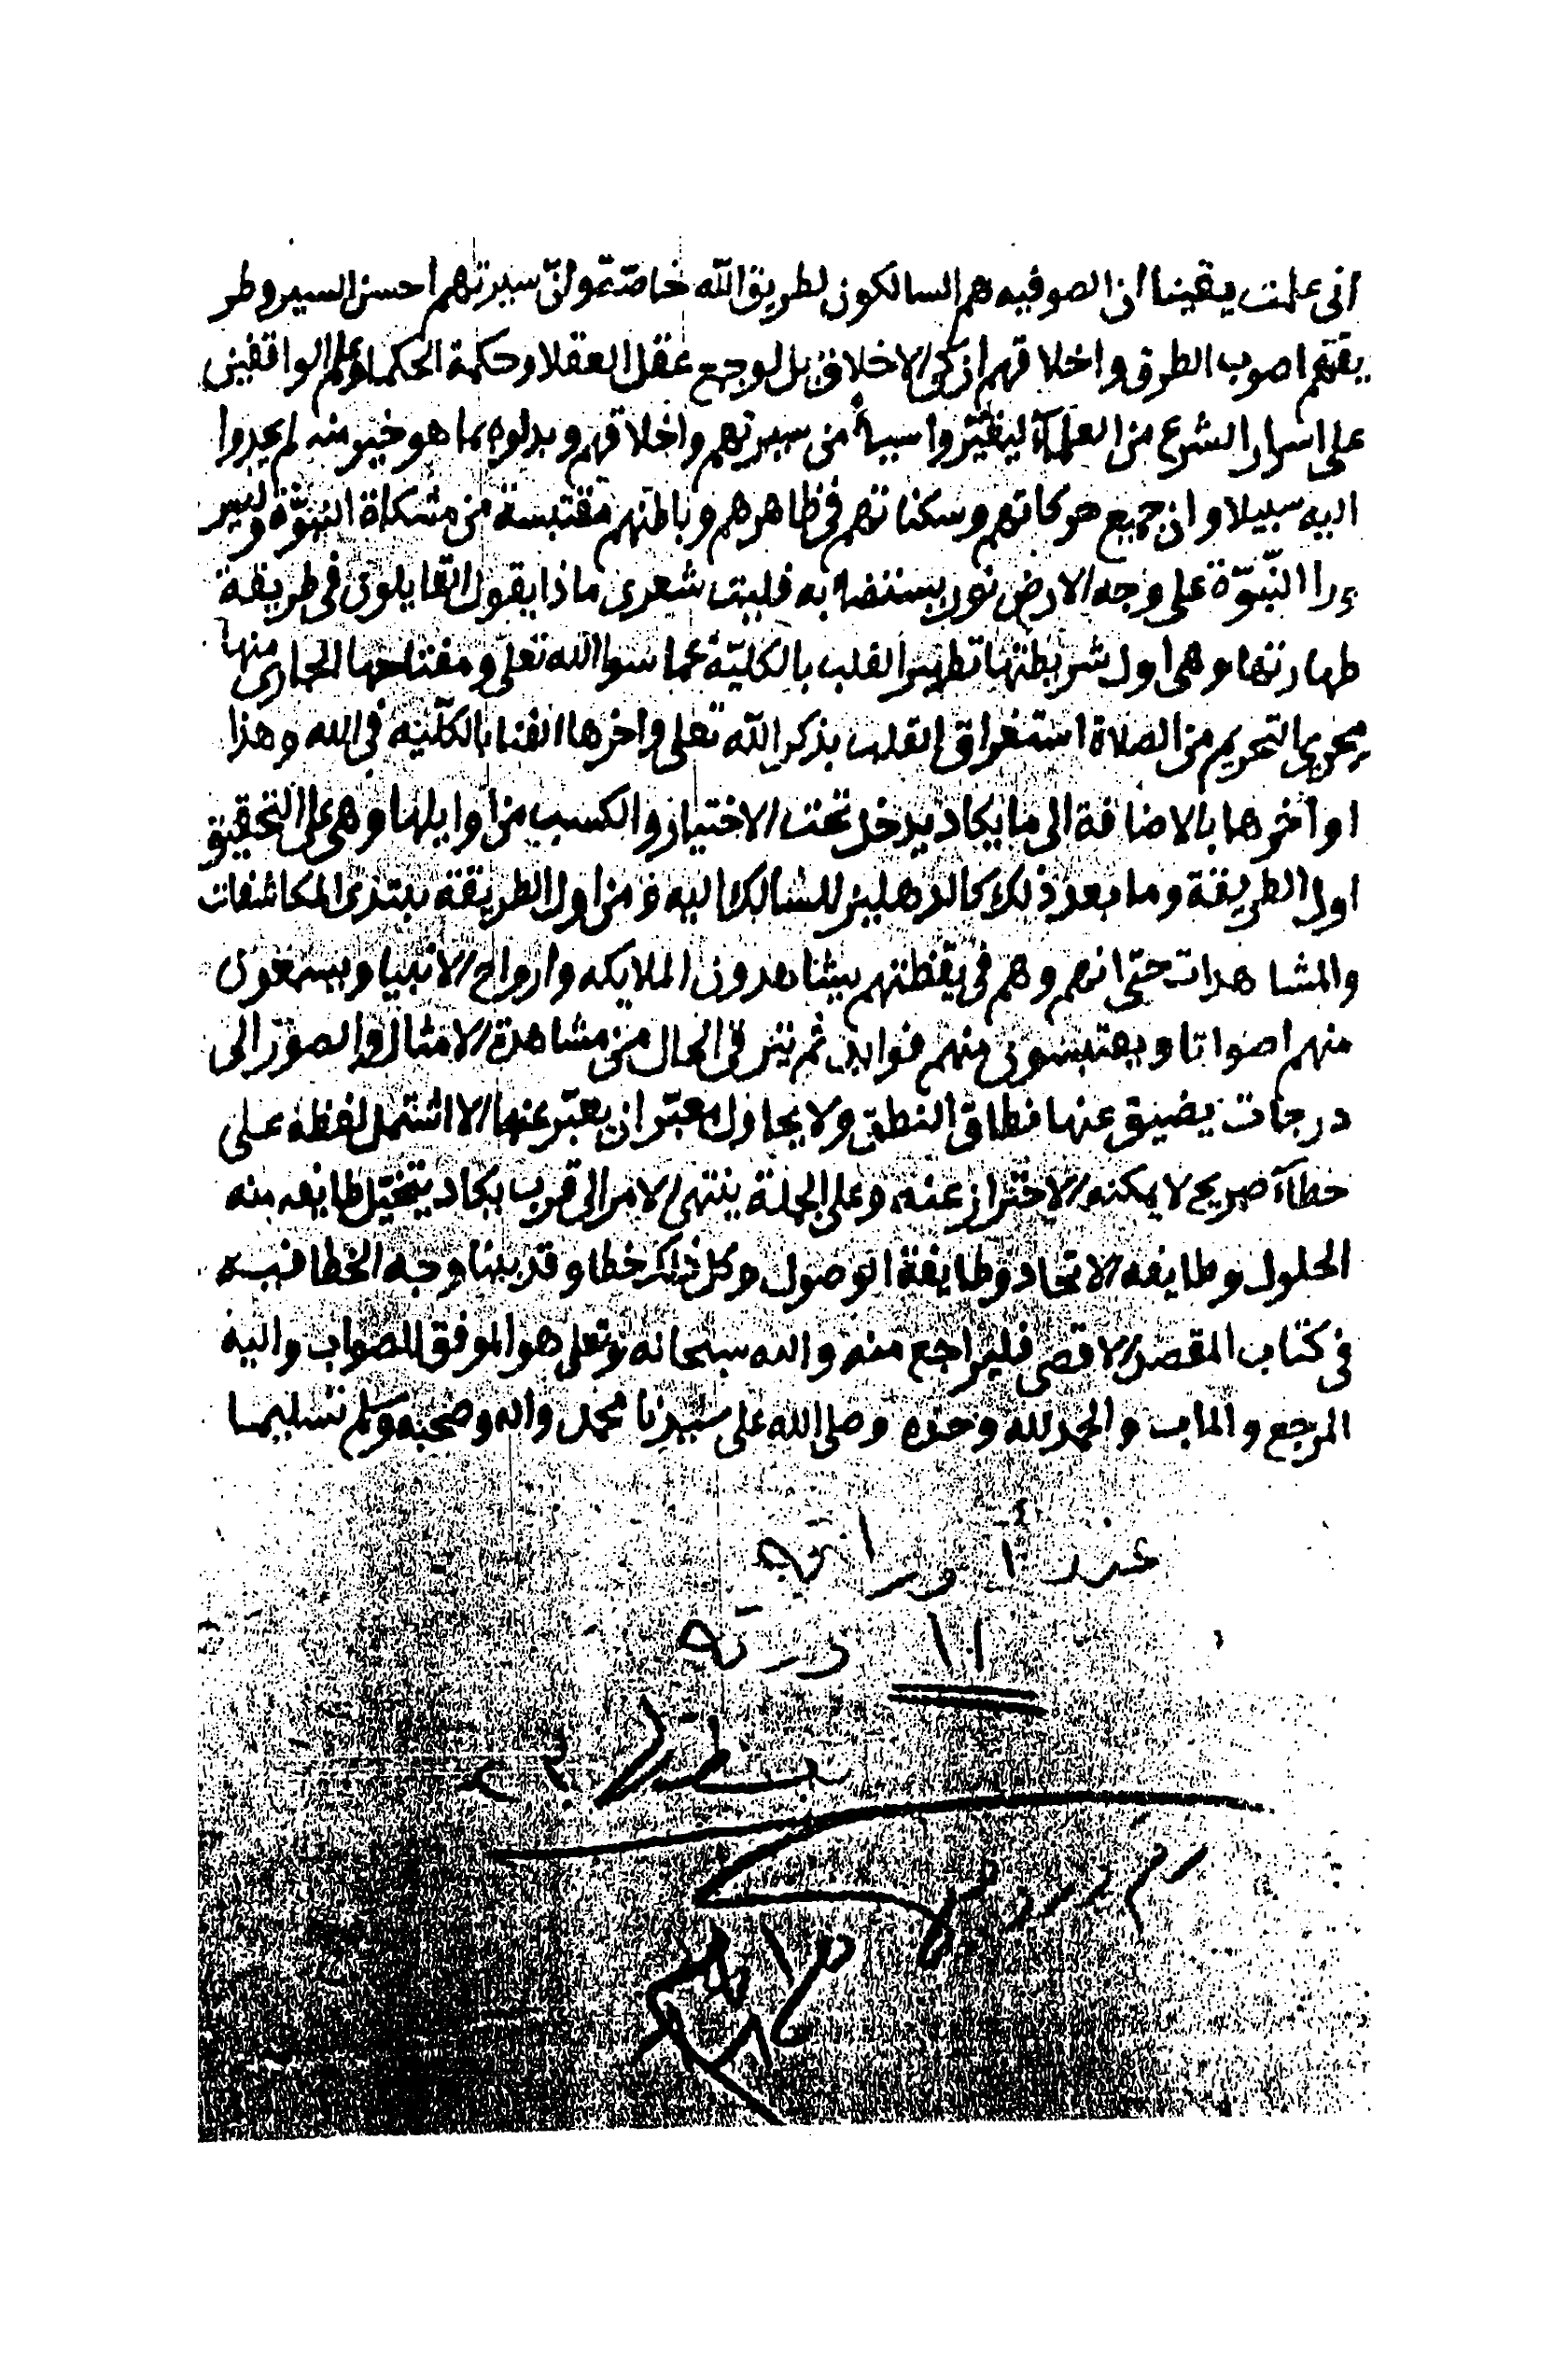 انى علمت يقينا ان الصوفيه هم السالكون لطريق الله خاصّة وانّ سيرتهم احسن السير وطر
يقتهم اصوب الطرق واخلاقهم ازكى الاخلاق بل لو جمع عقل العقلا وحكمة الحكما وعلم الواقفين
على اسرار الشرع من العلمآ ليغيّروا شيئا من سيرتهم واخلاقهم وبدلوه بما هو خير منه لم يجدوا
اليه سبيلا وان جميع حركاتهم وسكناتهم فى ظاهرهم وباطنهم مقتبسة من مشكاة النبوّة وليس
ورا النّبوّة على وجه الارض نور يستضا به فليت شعرى ماذا يقول القايلون فى طريقة
طهارتها وهى اول شريطتها تطهير القلب بالكليّة عما سوا الله تعلى ومفتاحها الجارى منها
مجرى التحريم من الصلاة استغراق القلب بذكر الله تعلى واخرها الفنا بالكلّيه فى الله وهذا
اواخرها بالاضافة الى ما يكاد يدخل تحت الاختيار والكسب من اوايلها وهى على التحقيق
اول الطريقة وما بعد ذلك كالدهليز للسالك اليه ومن اول الطريقة يبتدى المكاشفات
والمشاهدات حتى انهم وهم فى يقظتهم يشاهدون الملايكه وارواح الانبيا ويسمعون
منهم اصواتا ويقتبسون منهم فوايد ثم يترقى الحال من مشاهدة الامثال والصور الى
درجات يضيق عنها نطاق النطق ولا يحاول معبّر ان يعبّر عنها الا اشتمل لفظه على
خطآء صريح لا يمكنه الاحتراز عنه وعلى الجملة ينتهى الامر الى قرب يكاد يتخيّل طايفه منه
الحلول وطايفه الاتحاد وطايفة الوصول وكل ذلك خطا وقد بينا وجه الخطا فيه
فى كتاب المقصد الاقصى فليراجع منه والله سبحانه وتعلى هو الموفق للصواب واليه
المرجع والماب والحمد لله وحده وصلى الله على سيدنا محمد واله وصحبه وسلم تسليما
عدد أوراقه
١١ ورقه